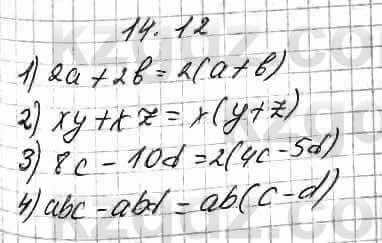 14.12
1) 2a + 2b = 2(a + b)
2) xy + xz = x(y + z)
3) 8c - 10d = 2(4c - 5d)
4) abc - abd = ab(c - d)